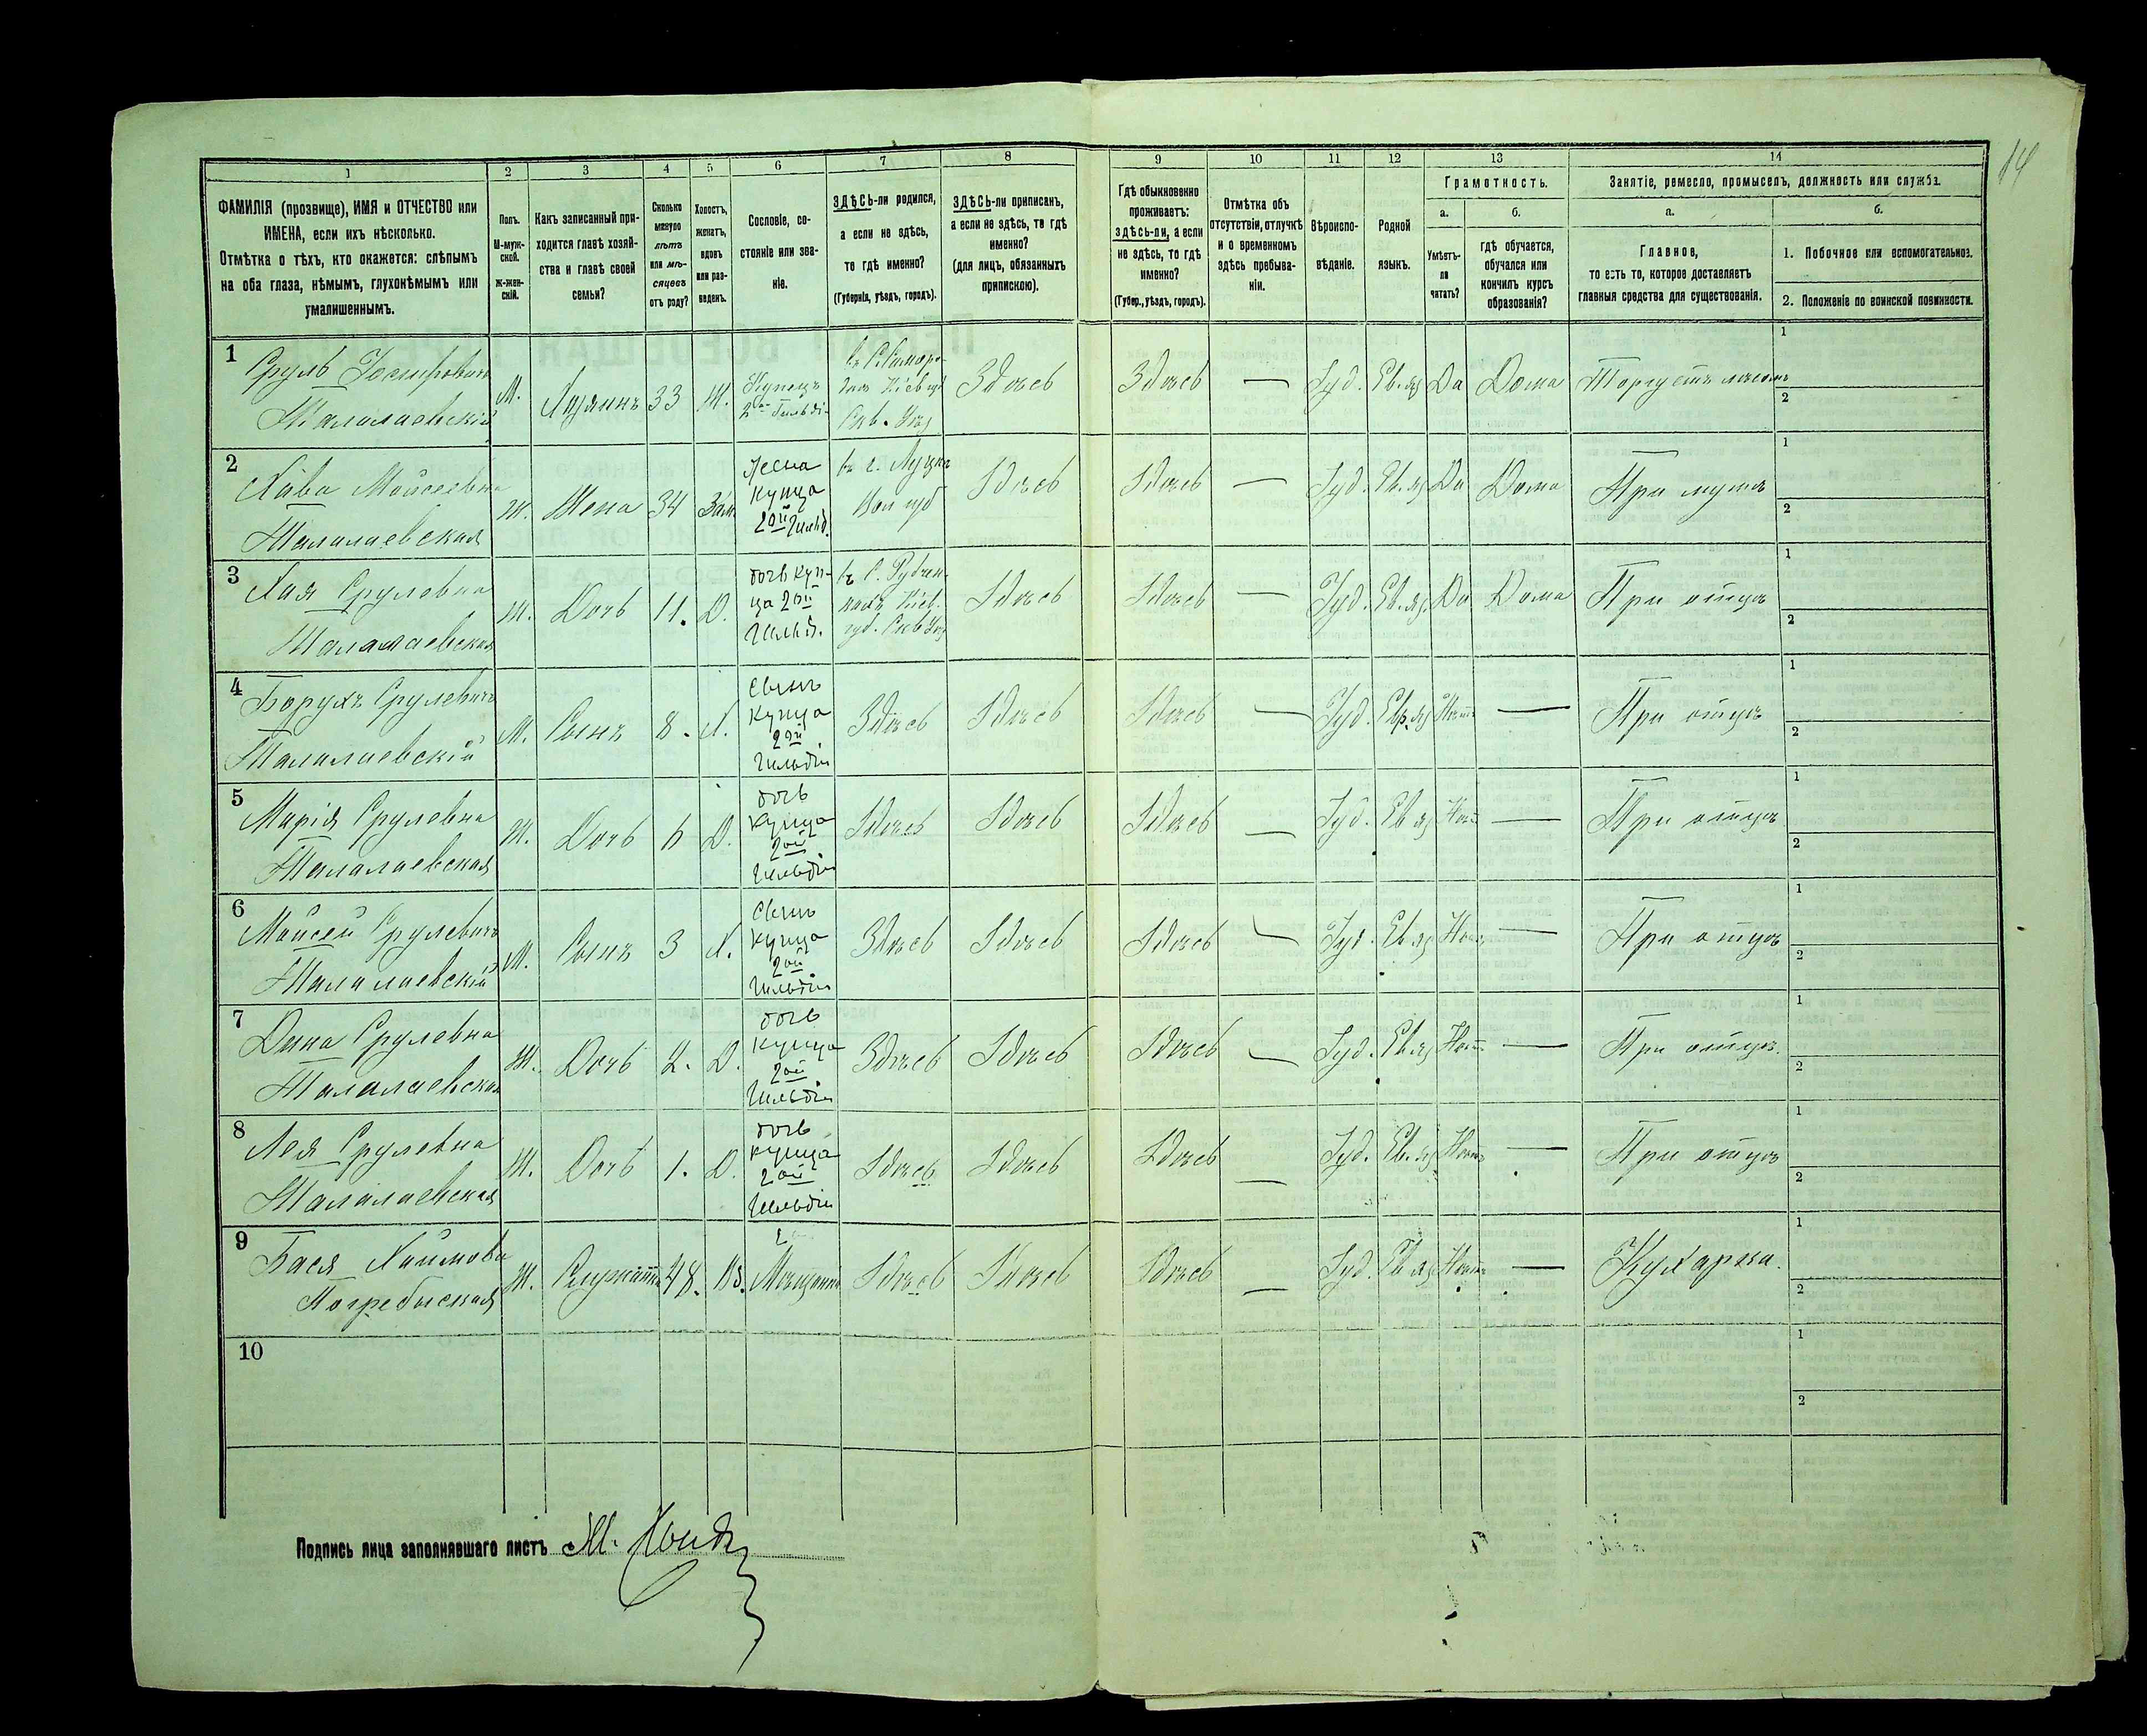 14
1 2 3 4 5 6 7 8 9 10 11 12 13 14
ФАМИЛІЯ (прозвище), ИМЯ и ОТЧЕСТВО или
ИМЕНА, если ихъ нѣсколько.
Отмѣтка о тѣхъ, кто окажется: слѣпымъ
на оба глаза, нѣмымъ, глухонѣмымъ или
умалишеннымъ.
Полъ.
М-муж-
ской.
ж-жен-
скій.
Какъ записанный при-
ходится главѣ хозяй-
ства и главѣ своей
семьи?
Сколько
минуло
лѣтъ
или мѣ-
сяцевъ
отъ роду?
Холостъ,
женатъ,
вдовъ
или раз-
веденъ.
Сословіе, со-
стояніе или зва-
ніе.
ЗДѢСЬ-ли родился,
а если не здѣсь,
то гдѣ именно?
(Губернія, уѣздъ, городъ).
ЗДѢСЬ-ли приписанъ,
а если не здѣсь, то гдѣ
именно?
(для лицъ, обязанныхъ
припискою).
Гдѣ обыкновенно
проживаетъ:
здѣсь-ли, а если
не здѣсь, то гдѣ
именно?
(Губер., уѣздъ, городъ).
Отмѣтка объ
отсутствіи, отлучкѣ
и о временномъ
здѣсь пребыва-
ніи.
Вѣроиспо-
вѣданіе.
Родной
языкъ.
Грамотность.
а.
Умѣетъ-
ли
читать?
б.
гдѣ обучается,
обучался или
кончилъ курсъ
образованія?
Занятіе, ремесло, промыселъ, должность или служба.
а.
Главное,
то есть то, которое доставляетъ
главныя средства для существованія.
б.
1. Побочное или вспомогательное.
2. Положеніе по воинской повинности.
1
Сруль Іосифовичъ
Талалаевскій
М. Хозяинъ 33 Ж.
Купецъ
2ой Гильдіи
Кіев губ
Скв. Уѣз
Здѣсь Здѣсь — Іуд. Ев. яз Да Дома
1
2
2
Хава Мойсеевна
Талалаевская
Ж. Жена 34 Зам
Жена
купца
2ой Гильд.
въ г. Луцкѣ
Вол губ
Здѣсь Здѣсь — Іуд. Ев. яз Да Дома При мужѣ
1
2
3
Хая Срулевна
Талалаевская
Ж. Дочь 11. Д.
дочь куп-
ца 2ой
Гильд.
Кіев.
губ. Скв Уѣз
Здѣсь Здѣсь — Іуд. Ев. яз Да Дома При отцѣ
1
2
4
Борухъ Срулевичъ
Талалаевскій
М. Сынъ 8. Х.
Сынъ
купца
2ой
Гильдіи
Здѣсь Здѣсь Здѣсь — Іуд. Евр. яз Нѣтъ — При отцѣ
1
2
5
Марія Срулевна
Талалаевская
Ж. Дочь 6 Д.
дочь
купца
2ой
Гильдіи
Здѣсь Здѣсь Здѣсь — Іуд. Ев яз Нѣтъ — При отцѣ
1
2
6
Мойсей Срулевичъ
Талалаевскій
М. Сынъ 3 Х.
Сынъ
купца
2ой
Гильдіи
Здѣсь Здѣсь Здѣсь — Іуд. Ев яз Нѣтъ — При отцѣ
1
2
7
Дина Срулевна
Талалаевская
Ж. Дочь 2. Д.
дочь
купца
2ой
Гильдіи
Здѣсь Здѣсь Здѣсь — Іуд. Ев яз Нѣтъ — При отцѣ
1
2
8
Лея Срулевна
Талалаевская
Ж. Дочь 1. Д.
дочь
купца
2ой
Гильдіи
Здѣсь Здѣсь Здѣсь — Іуд. Ев. яз Нѣтъ — При отцѣ
1
2
9
Бася Хаимовна
Погребыская
Ж. 48. Вд.
Здѣсь Здѣсь Здѣсь — Іуд. Ев яз Нѣтъ — Кухарка.
1
2
10
1
2
Подпись лица заполнявшаго листъ